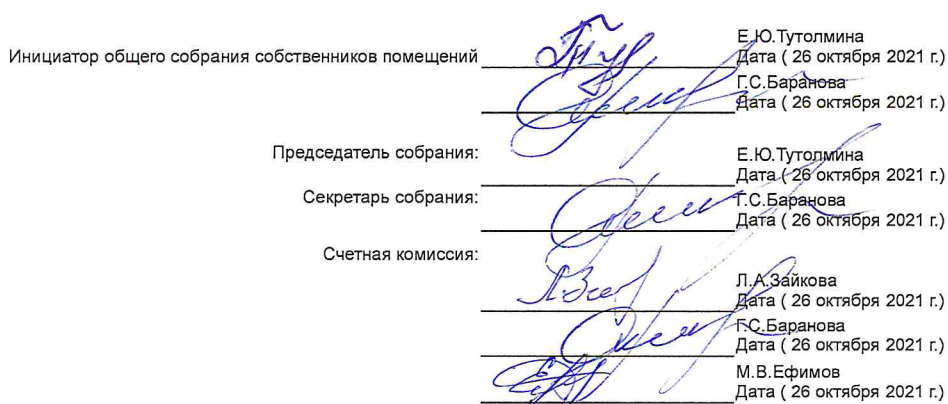 Е.Ю.Тутолмина
Инициатор общего собрания собственников помещений Дата ( 26 октября 2021 г.)
Г.С.Баранова
Дата ( 26 октября 2021 г.)
Председатель собрания: Е.Ю.Тутолмина
Дата ( 26 октября 2021 г.)
Секретарь собрания: Г.С.Баранова
Дата ( 26 октября 2021 г.)
Счетная комиссия:
Л.А.Зайкова
Дата ( 26 октября 2021 г.)
Г.С.Баранова
Дата ( 26 октября 2021 г.)
М.В.Ефимов
Дата ( 26 октября 2021 г.)